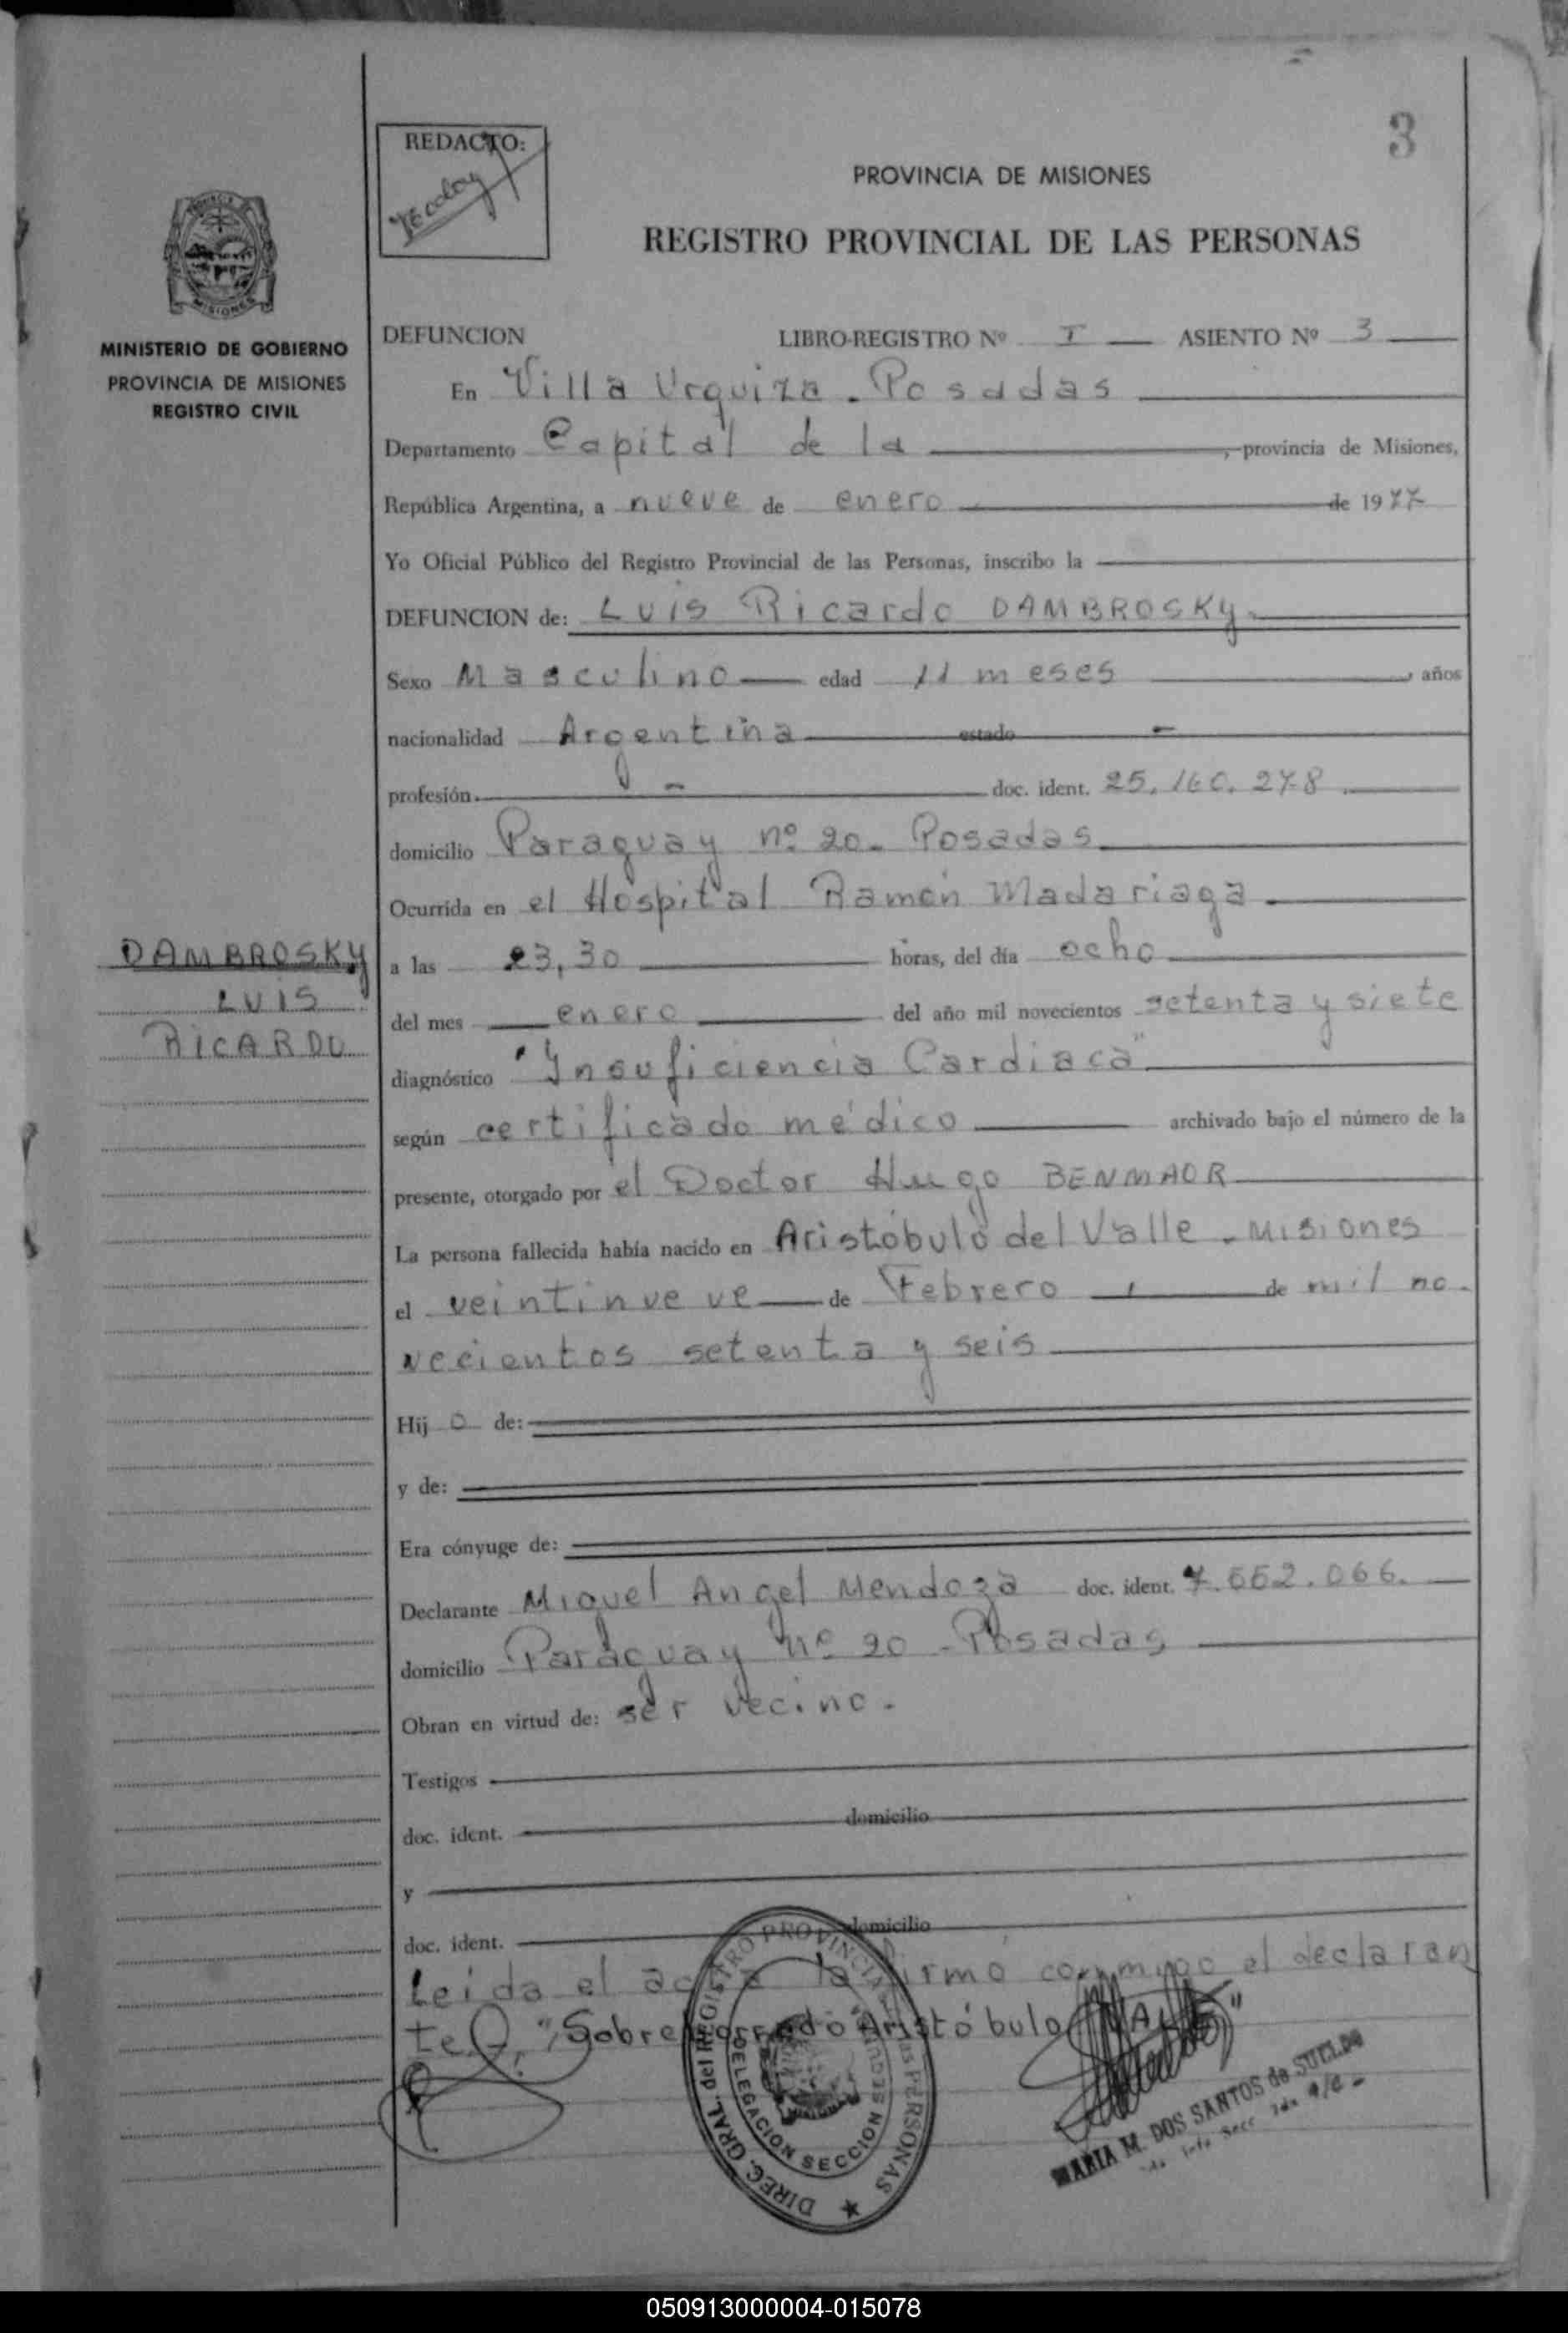 3
REDACTO:
PROVINCIA DE MISIONES
REGISTRO PROVINCIAL DE LAS PERSONAS
MISIONES
MINISTERIO DE GOBIERNO
PROVINCIA DE MISIONES
REGISTRO CIVIL
DEFUNCION LIBRO-REGISTRO Nº I ASIENTO Nº 3
En Villa Urquiza. Posadas
Departamento Capital de la , provincia de Misiones,
República Argentina, a nueve de enero de 1977
Yo Oficial Público del Registro Provincial de las Personas, inscribo la
DEFUNCION de: Luis Ricardo DAMBROSKY.
Sexo Masculino edad 11 meses , años
nacionalidad Argentina estado -
profesión. - doc. ident. 25.160.278.
domicilio Paraguay nº 20. Posadas
Ocurrida en el Hospital Ramón Madariaga
a las 23,30 horas, del día ocho
del mes enero del año mil novecientos setenta y siete
diagnóstico "Insuficiencia Cardiaca"
según certificado médico archivado bajo el número de la
presente, otorgado por el Doctor Hugo BENMAOR
La persona fallecida había nacido en Aristóbulo del Valle. Misiones
el veintinueve de Febrero de mil no-
vecientos setenta y seis
Hij o de:
y de:
Era cónyuge de:
Declarante Miguel Angel Mendoza doc. ident. 7.552.066.
domicilio Paraguay nº 20 - Posadas
Obran en virtud de: ser vecino.
Testigos
doc. ident. domicilio
y
doc. ident. domicilio
Leida el acta la firmó conmigo el declaran
te. "Sobreborrado Aristóbulo
DAMBROSKY
LUIS
RICARDO
DIREC. GRAL. del REGISTRO PROVINCIAL de las PERSONAS
DELEGACION SECCION SEGUNDA
MARIA M. DOS SANTOS de SUELDO
050913000004-015078